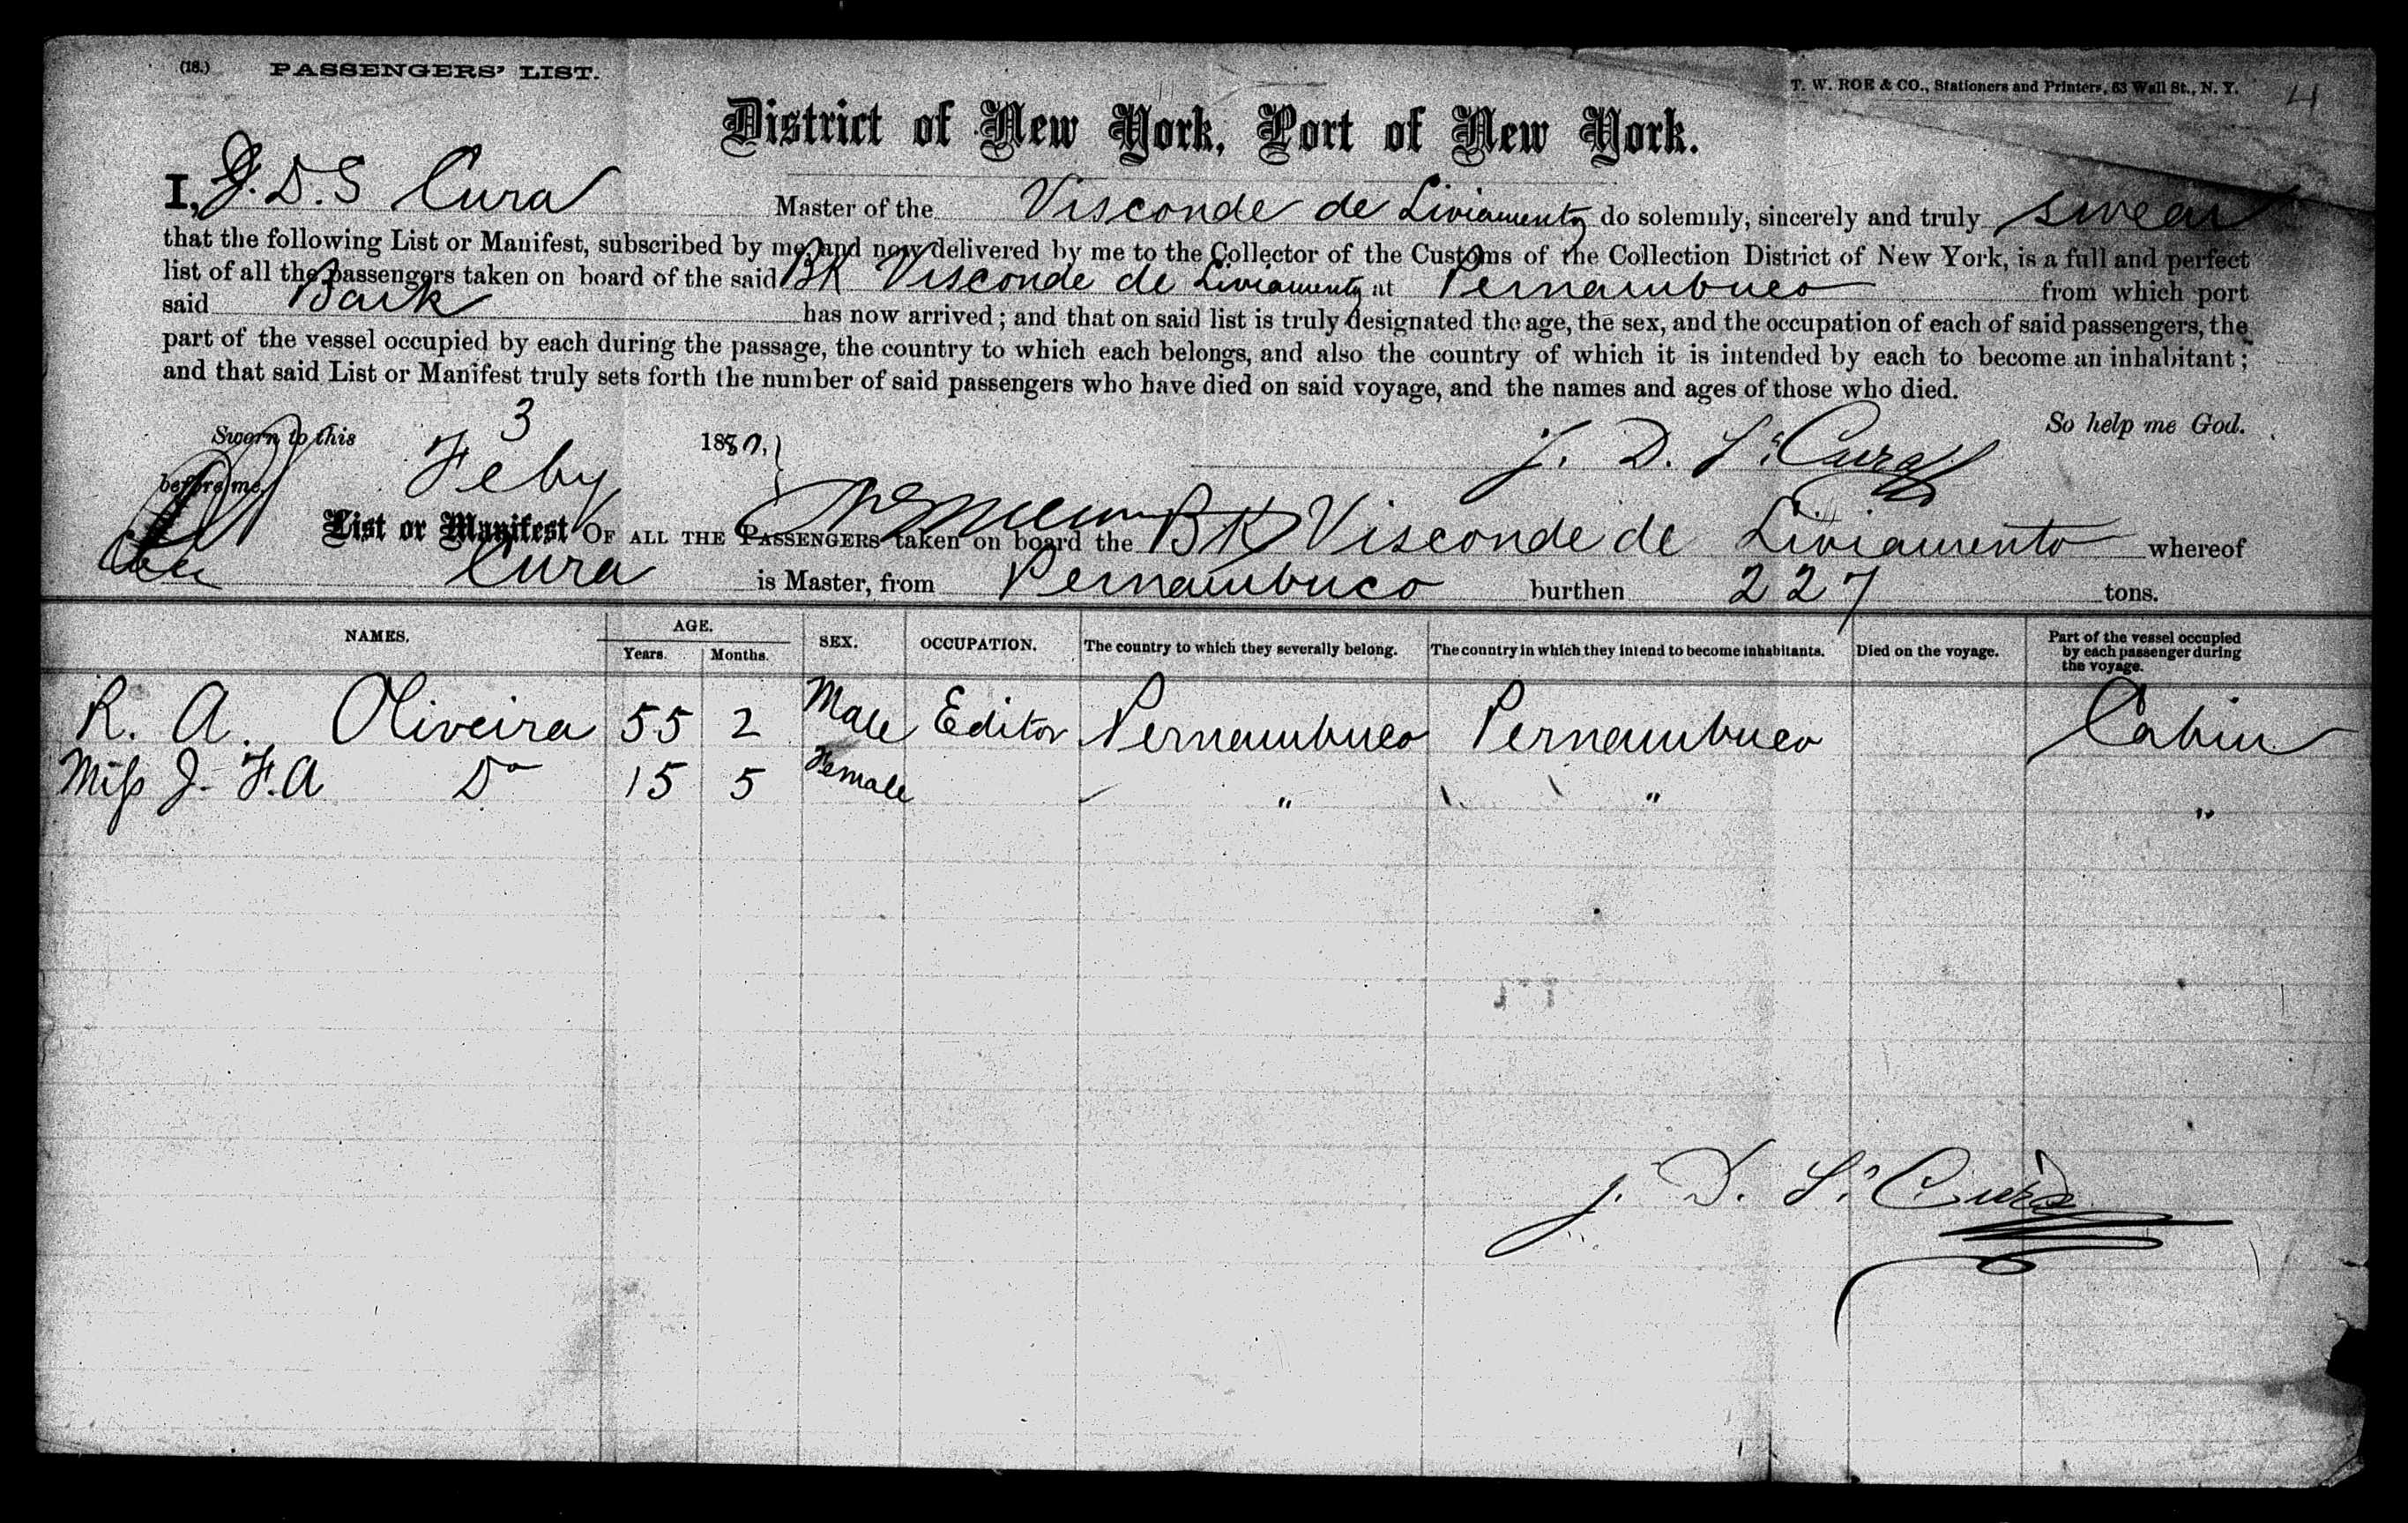 (18.) PASSENGERS' LIST.
T. W. ROE & CO., Stationers and Printers, 53 Wall St., N. Y. 4
District of New York, Port of New York.
I, J. D. S Cura Master of the Visconde de Liviamento do solemnly, sincerely and truly swear
that the following List or Manifest, subscribed by me, and now delivered by me to the Collector of the Customs of the Collection District of New York, is a full and perfect
list of all the passengers taken on board of the said Bk Visconde de Liviamento at Pernambuco from which port
said Bark has now arrived; and that on said list is truly designated the age, the sex, and the occupation of each of said passengers, the
part of the vessel occupied by each during the passage, the country to which each belongs, and also the country of which it is intended by each to become an inhabitant;
and that said List or Manifest truly sets forth the number of said passengers who have died on said voyage, and the names and ages of those who died.
So help me God.
Sworn to this 3 Feby 1880,
J. D. S. Cura
before me,
List or Manifest OF ALL THE PASSENGERS taken on board the BK Visconde de Liviamento whereof
Cura is Master, from Pernambuco burthen 227 tons.
NAMES. AGE. Years. Months. SEX. OCCUPATION. The country to which they severally belong. The country in which they intend to become inhabitants. Died on the voyage. Part of the vessel occupied by each passenger during the voyage.
R. A. Oliveira 55 2 Male Editor Pernambuco Pernambuco Cabin
Miss J. F. A Do 15 5 Female " " "
J. D. S. Cura